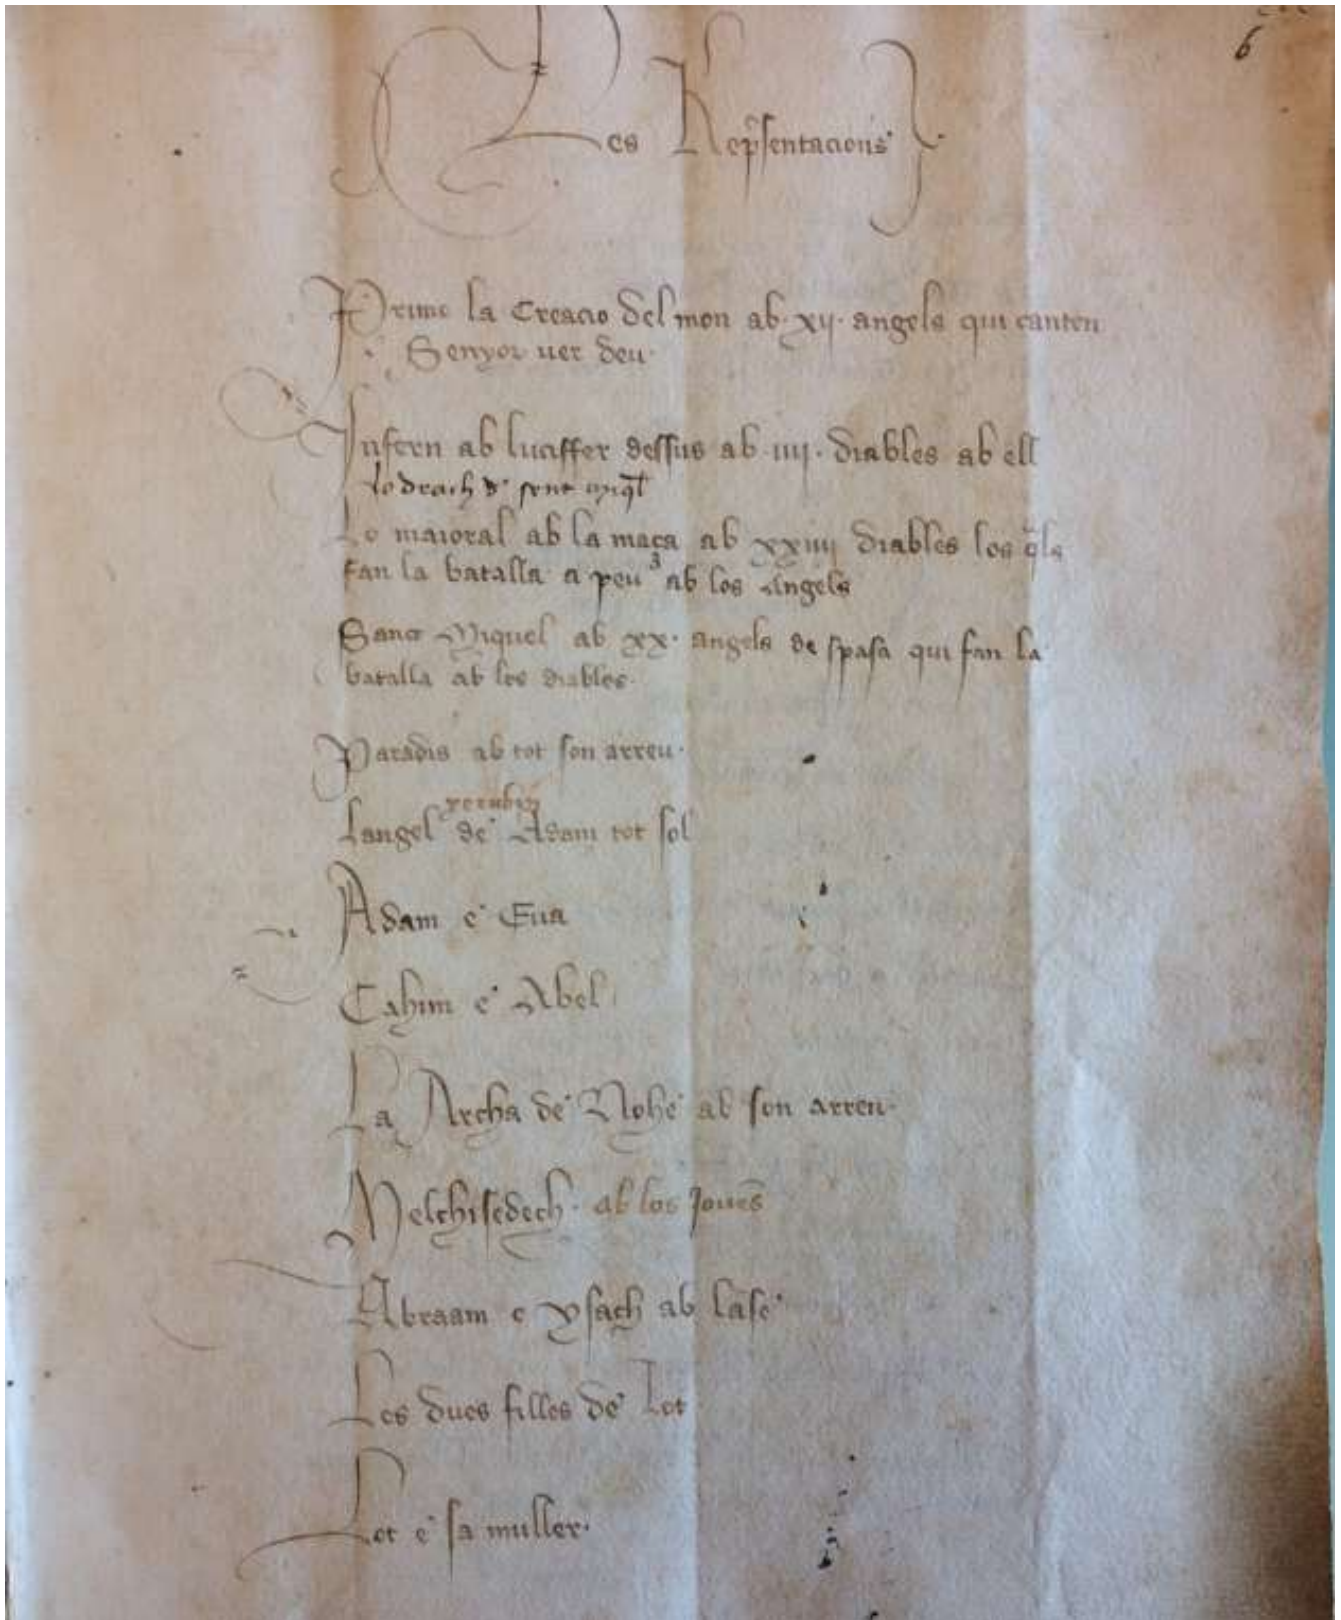 6
Les Rep̃sentacions
Primo la Creacio del mon ab .xij. angels qui canten
Senyor ver deu.
Infern ab luciffer dessus ab .iiij. diables ab ell
Lo drach d' sent miq̃l
Lo maioral ab la maça ab xxiiij diables los q̃ls
fan la batalla a peu ab los Angels
Sanct Miquel ab xx. angels de spasa qui fan la
batalla ab los diables.
Paradis ab tot son arreu.
xerubin
Langel de Adam tot sol
Adam e Eva
Cahim e Abel
La Archa de Nohe ab son arreu.
Melchisedech. ab los joves
Abraam e ysach ab lase
Les dues filles de Lot
Lot e sa muller.